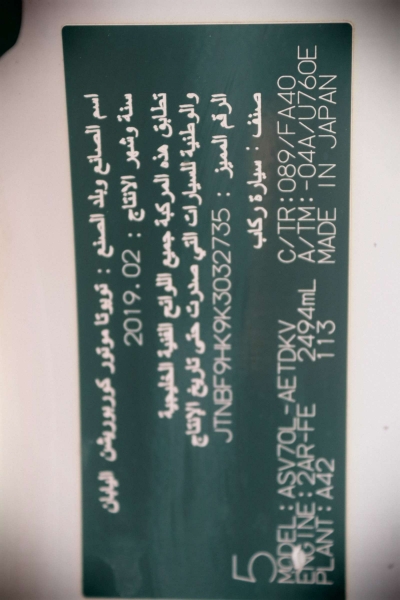 اسم الصانع وبلد الصنع : تويوتا موتور كوربوريشن اليابان
سنة وشهر الانتاج : 2019.02
تطابق هذه المركبة جميع اللوائح الفنية الخليجية
والوطنية للسيارات التي صدرت حتى تاريخ الإنتاج
الرقم المميز : JTNBF9HK9K3032735
صنف : سيارة ركاب
5
MODEL:ASV70L-AETDKV C/TR:089/FA40
ENGINE:2AR-FE 2494mL A/TM:-04A/U760E
PLANT:A42 113 MADE IN JAPAN